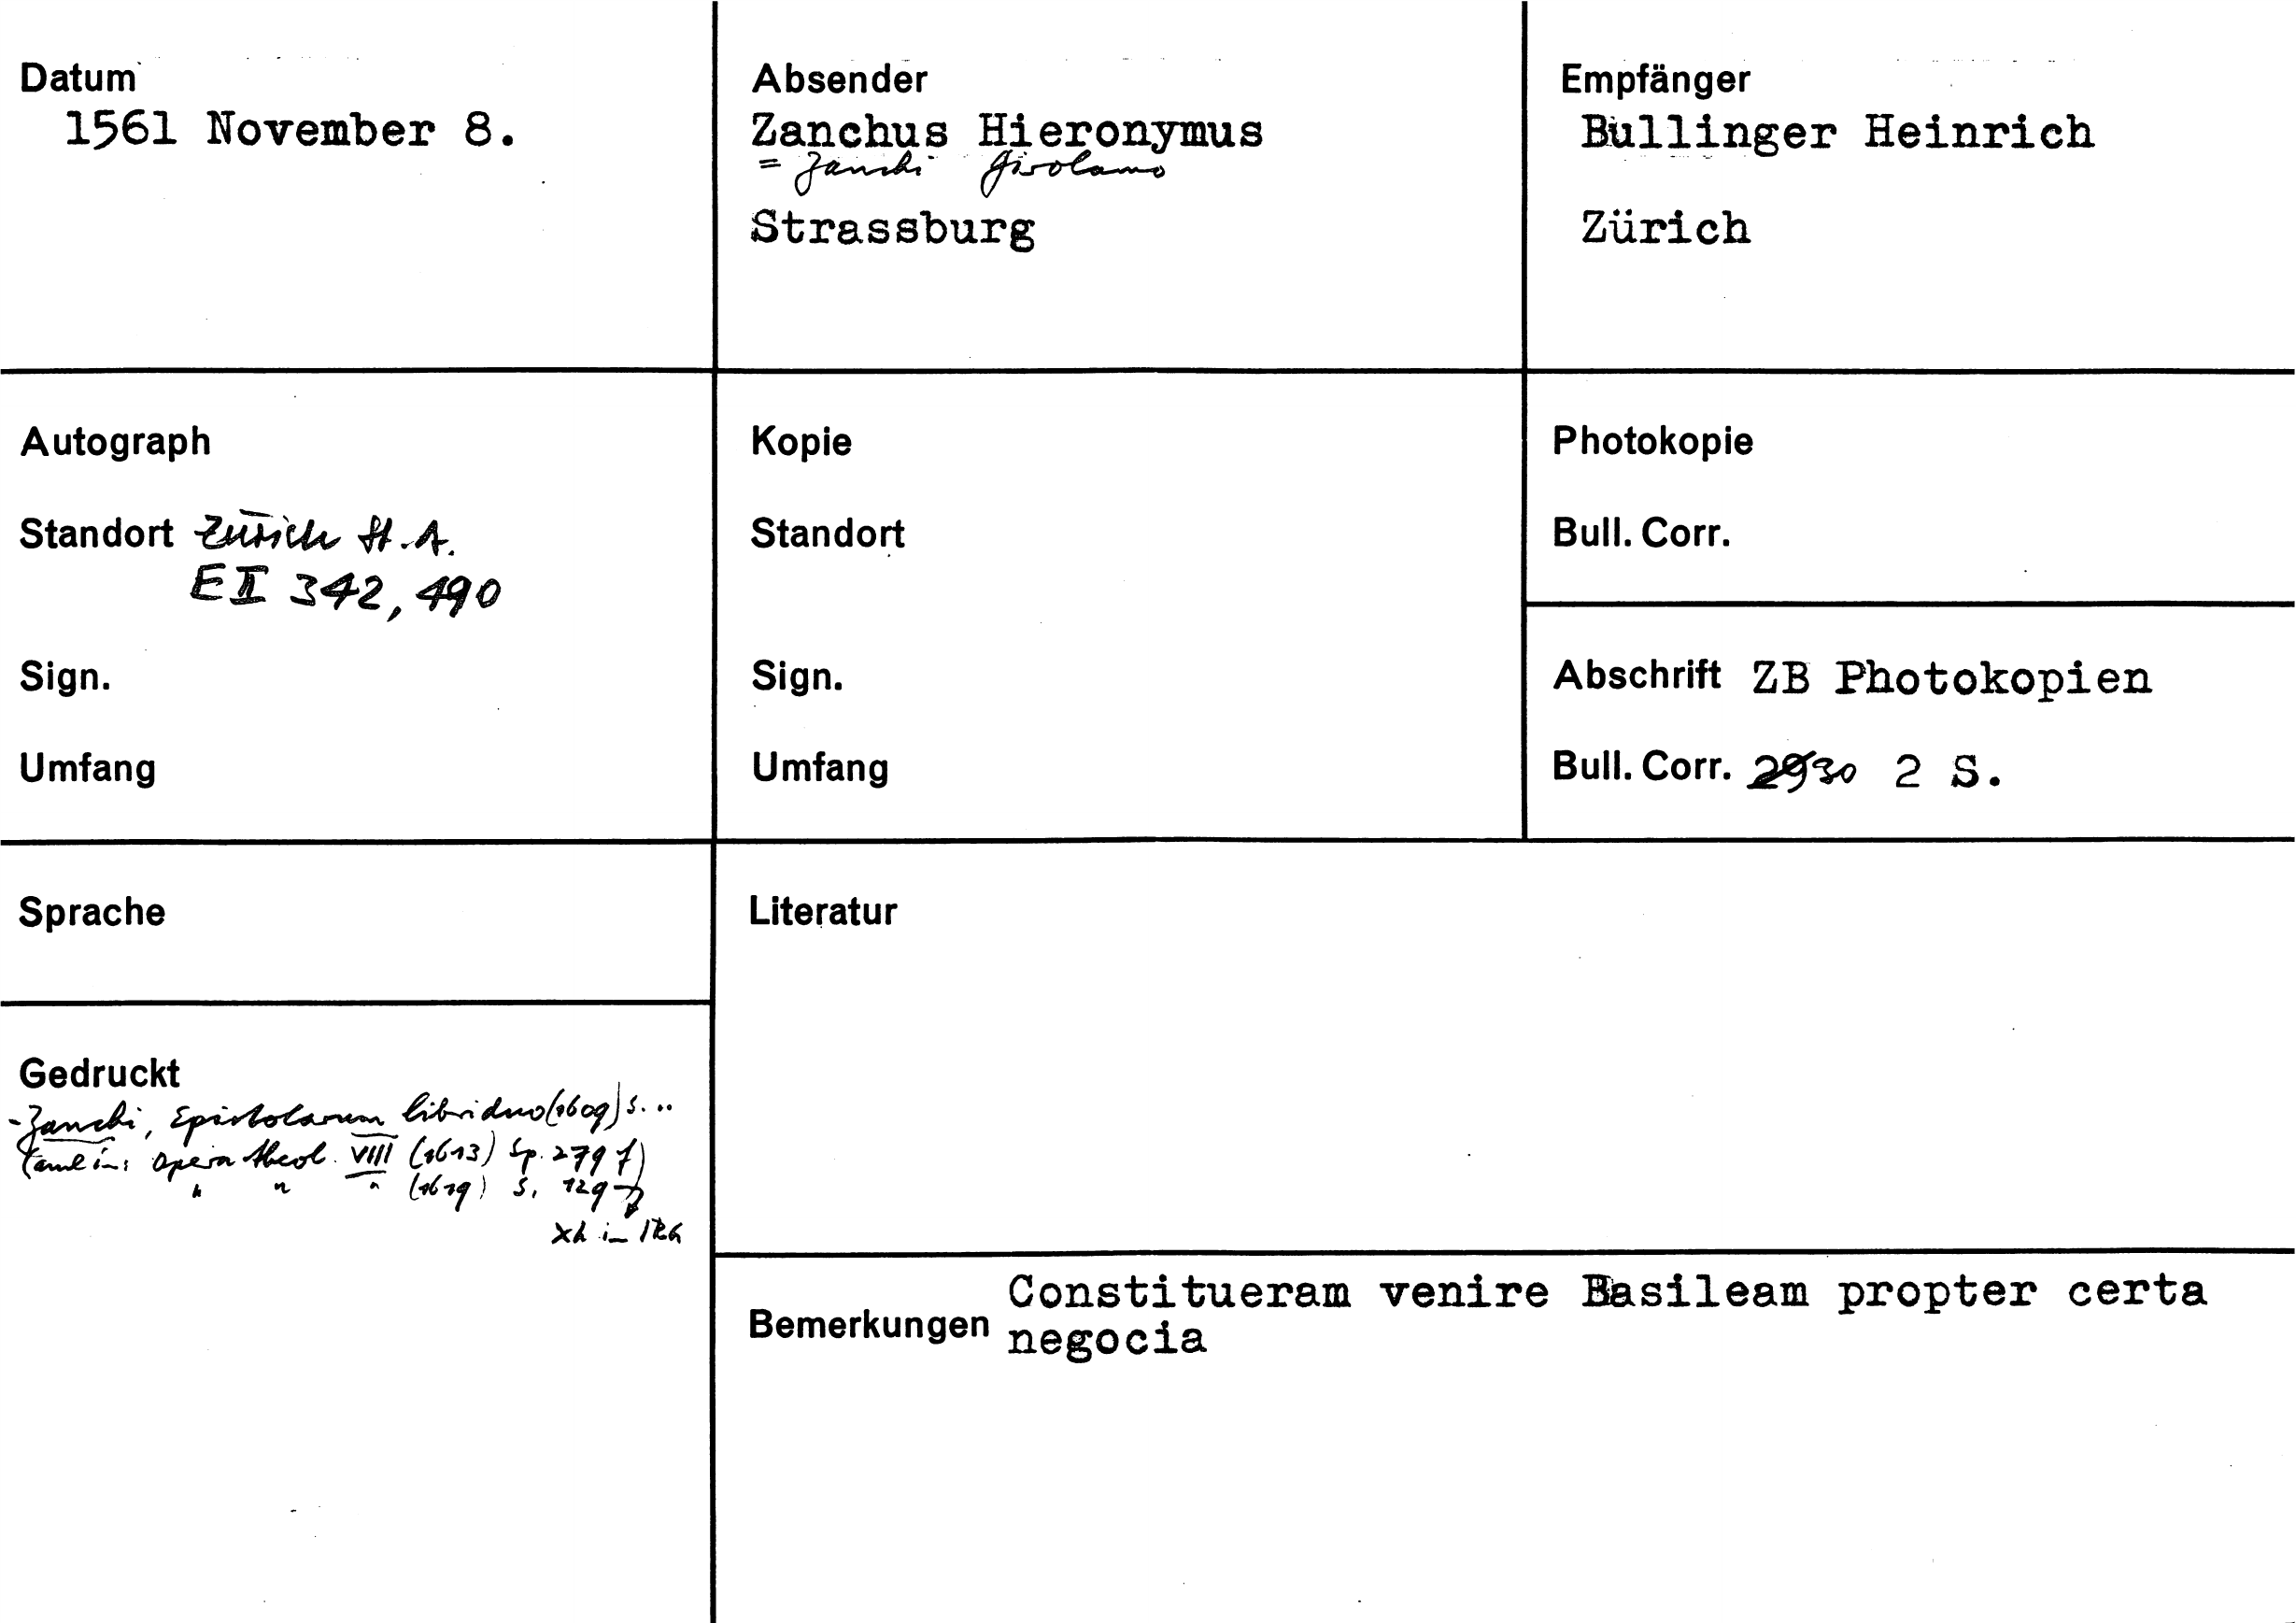 Datum
1561 November 8.
Absender
Zanchus Hieronymus
= Zanchi Girolamo
Strassburg
Empfänger
Bullinger Heinrich
Zürich
Autograph
Standort Zürich St.A.
E II 342, 490
Sign.
Umfang
Kopie
Standort
Sign.
Umfang
Photokopie
Bull. Corr.
Abschrift ZB Photokopien
Bull. Corr. 2930 2 S.
Sprache
Gedruckt
- Zanchi, Epistolarum libri duo (1609) S. ...
in: Opera theol. VIII (1613) Sp. 279 f)
" " " (1619) S. 129
in IRG
Literatur
Bemerkungen Constitueram venire Basileam propter certa
negocia